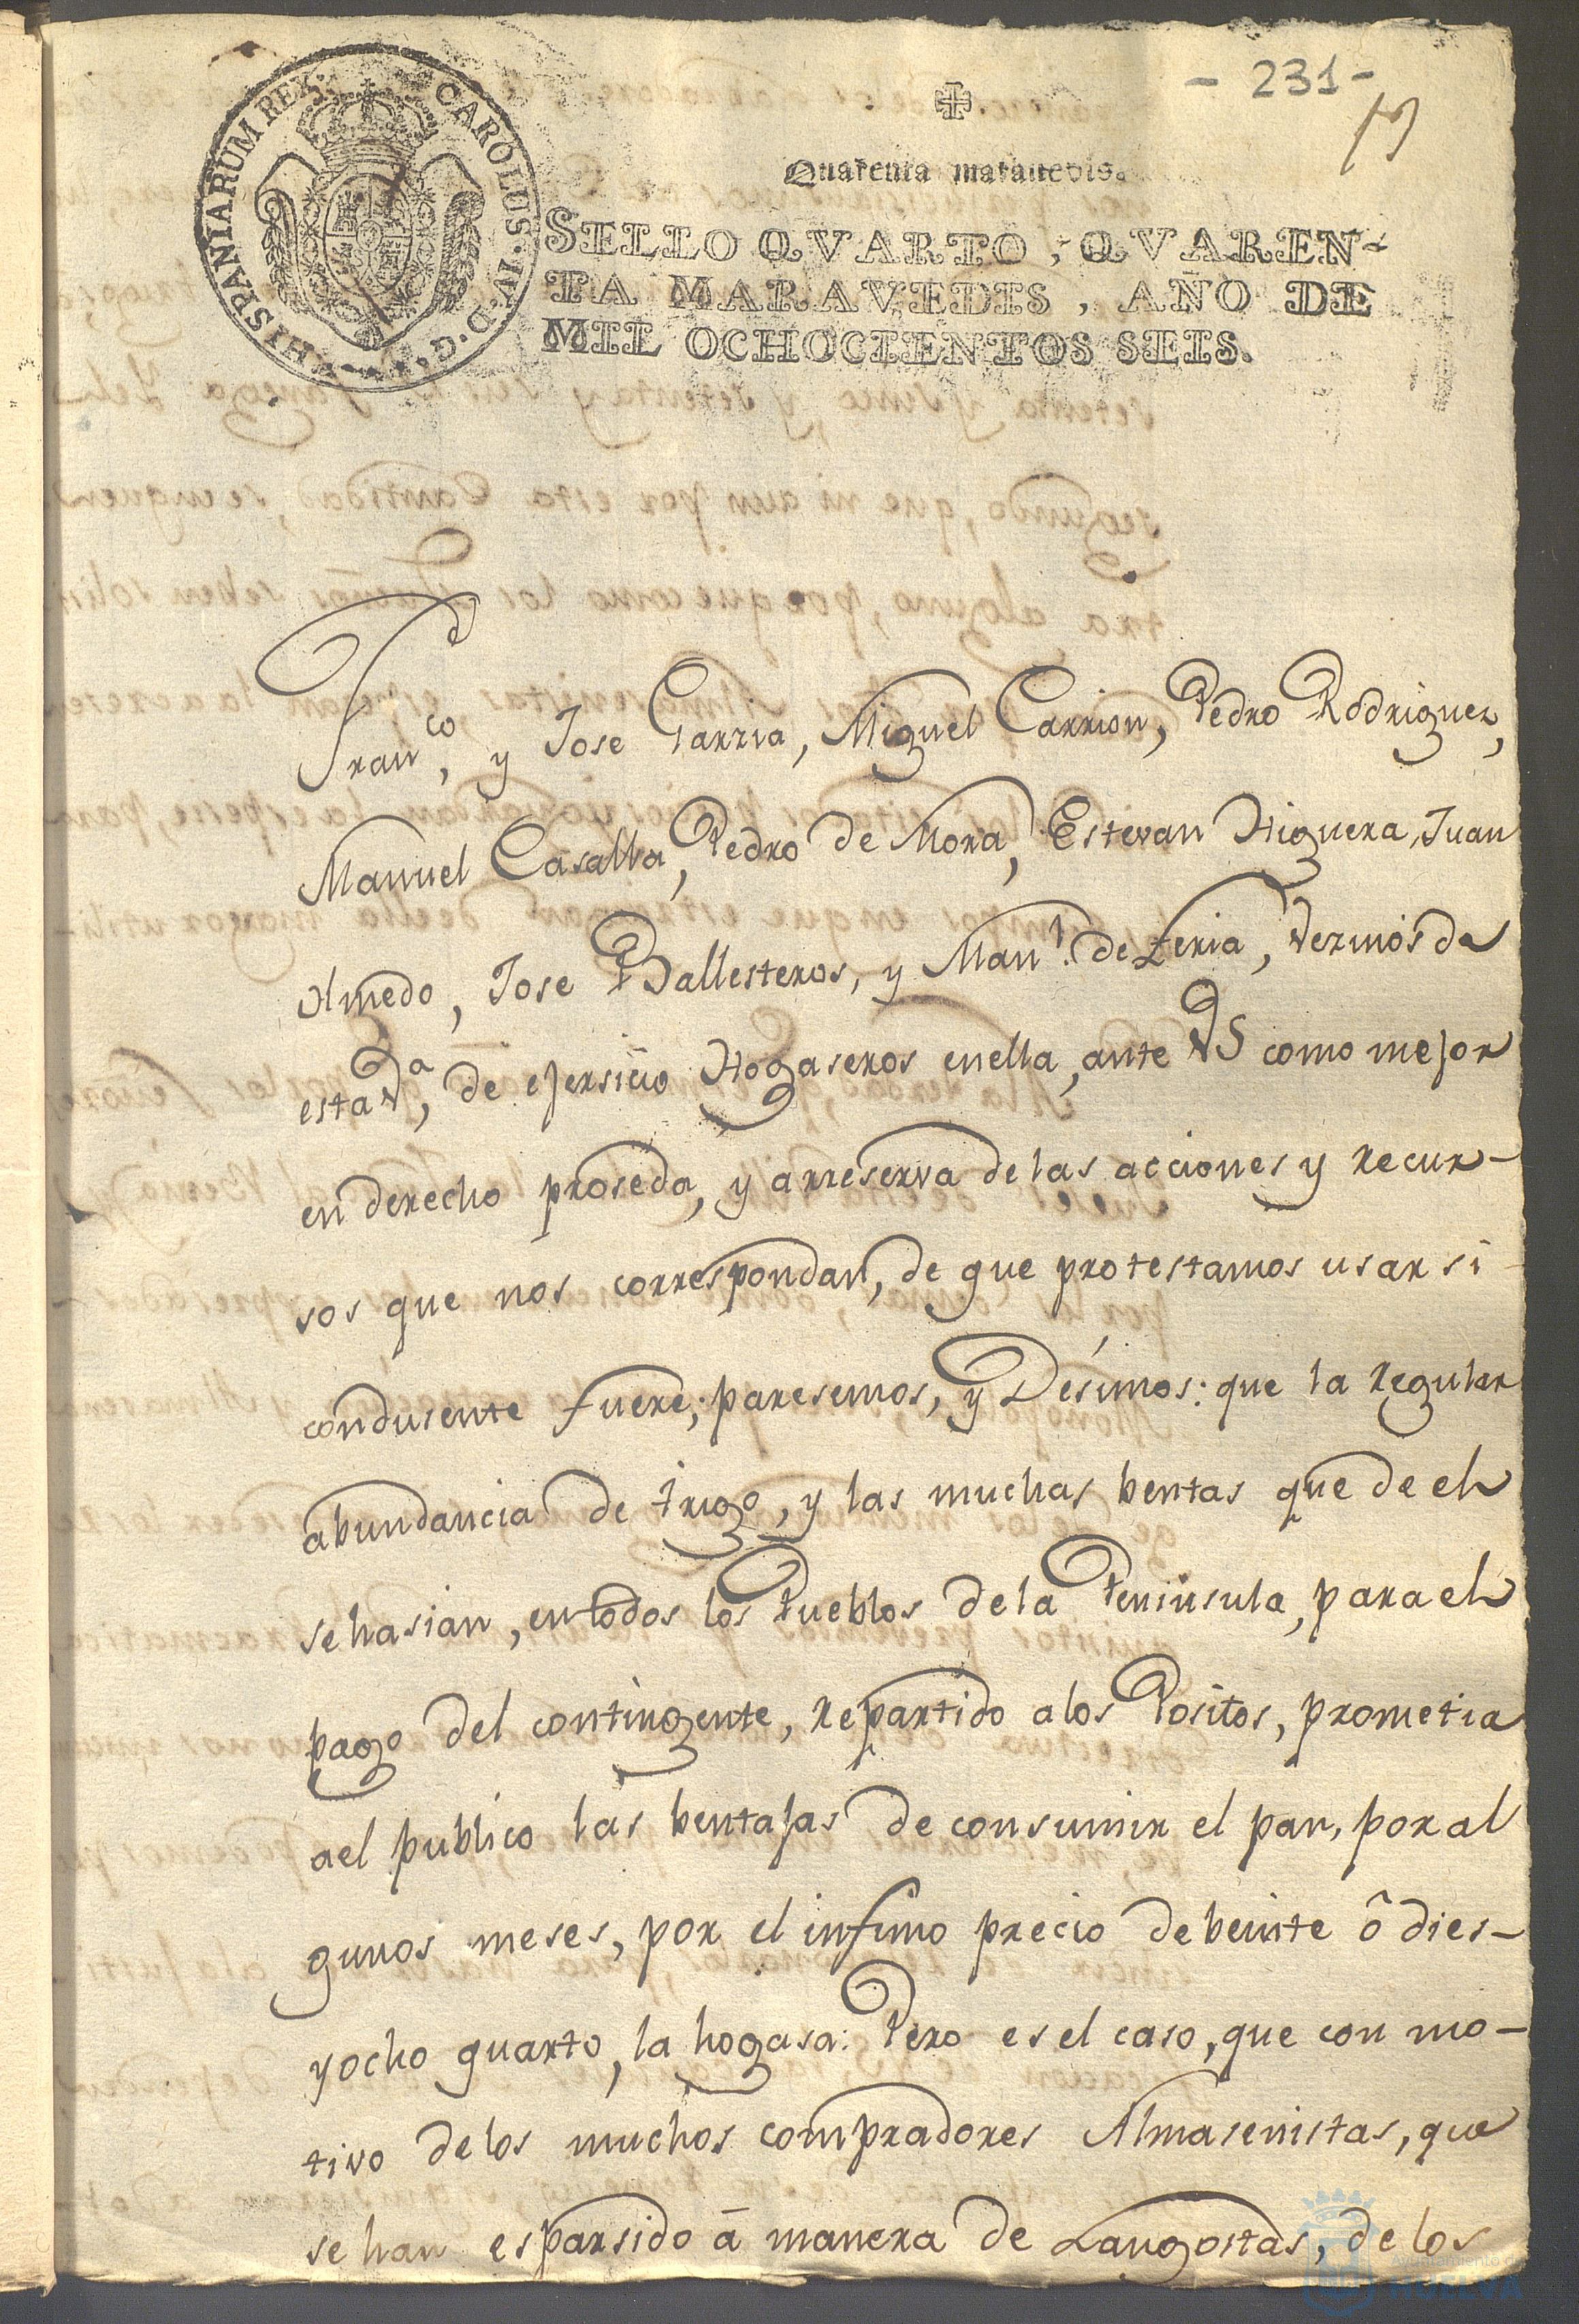 - 231 -
Quarenta maravedis.
CAROLUS·IV·D·G· HISPANIARUM REX·
SELLO QVARTO, QVAREN-
TA MARAVEDIS, AÑO DE
MIL OCHOCIENTOS SEIS.
Franco, y Jose Garzia, Miguel Carrion, Pedro Rodriguez,
Manuel Casalla, Pedro de Mora, Estevan Higuera, Juan
Olmedo, Jose Ballesteros, y Manl. de Leria, Vezinos de
esta Va, de ejersicio Hogaseros enella, ante VS como mejor
en derecho proseda, y arreserva de las acciones y recur-
sos que nos correspondan, de que protestamos usar si
condusente fuere; paresemos, y Desimos: que la regular
abundancia de trigo, y las muchas bentas que de el
se hasian, entodos los Pueblos de la Peninsula, para el
pago del contingente, repartido alos Positos, prometia
ael publico las bentajas de consumir el pan, por al
gunos meses, por el infimo precio de beinte ô dies-
yocho quarto, la hogasa: Pero es el caso, que con mo-
tivo delos muchos compradores Almasenistas, que
se han esparsido â manera de Langostas, de los
Ayuntamiento de
HUELVA